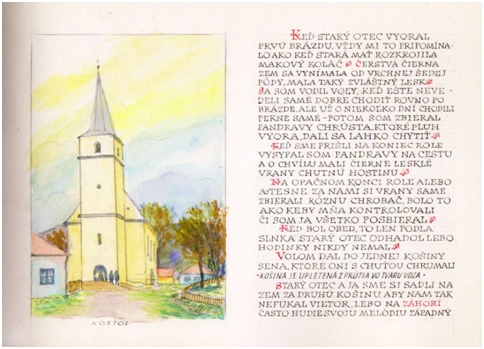 KEĎ STARÝ OTEC VYORAL
PRVÚ BRÁZDU, VŽDY MI TO PRIPOMÍNA-
LO AKO KEĎ STARÁ MAŤ ROZKROJILA
MAKOVÝ KOLÁČ ČERSTVÁ ČIERNA
ZEM SA VYNÍMALA OD VRCHNEJ ŠEDEJ
PÔDY, MALA TAKÝ ZVLÁŠTNÝ LESK
JA SOM VODIL VOLY, KEĎ EŠTE NEVE-
DELI SAMÉ DOBRE CHODIŤ ROVNO PO
BRÁZDE, ALE UŽ O NIEKOĽKO DNÍ CHODILI
PEKNE SAMÉ - POTOM SOM ZBIERAL
PANDRAVY CHRÚSTA, KTORÉ PLUH
VYORA, DALI SA ĽAHKO CHYTIŤ
KEĎ SME PRIŠLI NA KONIEC ROLE
VYSYPAL SOM PANDRAVY NA CESTU
A O CHVÍĽU MALI ČIERNE LESKLÉ
VRANY CHUTNÚ HOSTINU
NA OPAČNOM KONCI ROLE ALEBO
AJ TESNE ZA NAMI SI VRANY SAMÉ
ZBIERALI RÔZNU CHROBAČ, BOLO TO
AKO KEBY MŇA KONTROLOVALI
ČI SOM JA VŠETKO POSBIERAL
KEĎ BOL OBED, TO LEN PODĽA
SLNKA STARÝ OTEC ODHADOL LEBO
HODINKY NIKDY NEMAL
VOLOM DAL DO JEDNEJ KOŠINY
SENA, KTORÉ ONI S CHUŤOU CHRUMALI
KOŠINA JE UPLETENÁ Z PRÚTIA VO TVARU VOZA
STARÝ OTEC A JA SME SI SADLI NA
ZEM ZA DRUHÚ KOŠINU ABY NÁM TAK
NEFÚKAL VIETOR, LEBO NA ZÁHORÍ
ČASTO HUDIE SVOJU MELÓDIU ZÁPADNÝ
KOSTOL